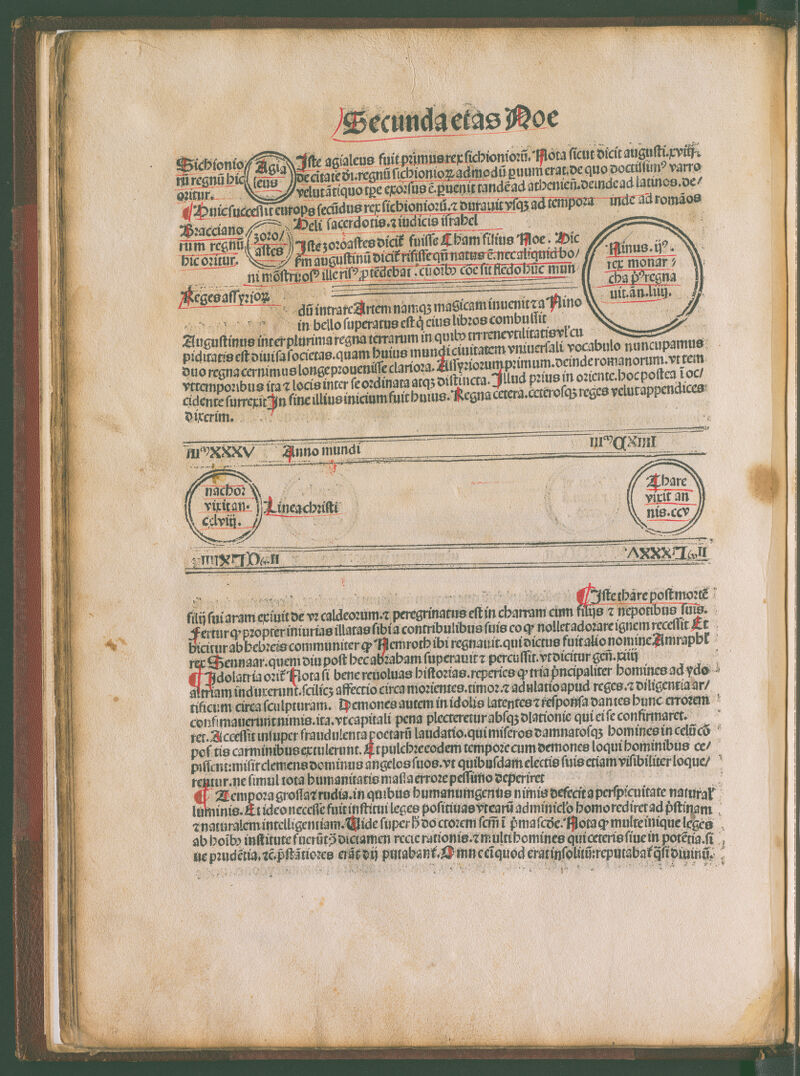 Secunda etas Noe
Sichionio/
rū regnū hic
oritur.
Agia
leus
Iste agialeus fuit primus rex sichioniorū. Nota sicut dicit augusti. xviij.
de citate di. regnū sichionioꝝ admodū puum erat. de quo doctissimꝰ varro
velut ātiquo tꝑe exorsus ē. puenit tandē ad atheniēn. deinde ad latinos. de/
inde ad romāos
¶ Huic successit europs secūdus rex sichioniorū. ⁊ durauit vsqꝫ ad tempora
Heli sacerdotis. ⁊ iudicis israhel
Bracciano
rum regnū
hic oritur.
zoro/
astes
Iste zoroastes dicit᷑ fuisse Cham filius Noe. Hic
ẜm augustinū dicit᷑ risisse qn̄ natus ē: nec aliquid bo/
ni mōstruosꝰ ille risꝰ ꝓtēdebat. cū oībꝰ cōe sit flendo hūc mun
Ninus. ijꝰ.
rex monar
cha pꝰ. regna
uit. an. liiij.
Reges assyrioꝝ
dū intrare Artem namqꝫ magicam inuenit ⁊ a Nino
in bello superatus est q̇ eius libros combussit
Augustinus inter plurima regna terrarum in quibꝰ terrene vtilitatis vl̕ cu
piditatis est diuisa societas. quam huius mundi ciuitatem vniuersali vocabulo nuncupamus
duo regna cernimus longe prouenisse clariora. Assyriorum primum. deinde romanorum. vt tem
vt temporibus ita ⁊ locis inter se ordinata atqꝫ distincta. Illud prius in oriente. hoc postea ī oc/
cidente surrexit In fine illius inicium fuit huius. Regna cetera. ceterosqꝫ reges velut appendices
dixerim.
IIIᵐXXXV Anno mundi IIIᵐCXIIII
nachor
vixit an.
cclviij.
Linea christi
Thare
vixit an
nis. ccv
¶ Iste thare post mortē
filij sui aram exiuit de vr caldeorum. ⁊ peregrinatus est in charram cum filijs ⁊ nepotibus suis.
Fertur qꝫ propter iniurias illatas sibi a contribulibus suis eo qꝫ nollet adorare ignem recessit Et
dicitur ab hebreis communiter qꝫ Nemroth ibi regnauit. qui dictus fuit alio nomine Amraphel
rex Sennaar. quem diu post hec abraham superauit ⁊ percussit. vt dicitur geñ. xiiij
¶ Idolatria orit᷑ Nota si bene reuoluas historias. reperies qꝫ tria p̄ncipaliter homines ad ydo
latriam induxerunt. scilicꝫ affectio circa morientes. timor. ⁊ adulatio apud reges. ⁊ diligentia ar/
tificum circa sculpturam. Demones autem in idolis latentes ⁊ responsa dantes hunc errorem
confirmauerunt nimis. ita. vt capitali pena plecteretur absqꝫ dilatione qui ei se confirmaret.
ret. Accessit insuper fraudulenta poetarū laudatio. qui miseros damnatosqꝫ homines in celū cō
positis carminibus extulerunt. Et pulchre eodem tempore cum demones loqui hominibus ce/
pissent: misit clemens dominus angelos suos. vt quibusdam electis suis etiam visibiliter loque/
rentur. ne simul tota humanitatis massa errore pessimo deperiret
¶ Tempora grossa ⁊ rudia. in quibus humanum genus nimis defecit a perspicuitate natural᷑
luminis. Et ideo necesse fuit institui leges positiuas vt earū adminiclo homo rediret ad p̄stinam
⁊ naturalem intelligentiam. Vide super h̄ doctorem scm̄ ī p̄ma scd̄e. Nota qꝫ multe inique leges
ab hoīb̄ꝰ institute fuerūt ꝯ dictamen recte rationis. ⁊ multi homines qui ceteris siue in potētia. si
ue prudētia. ⁊c̄. p̄stātiores erāt dij putabant᷑. Omne em̄ quod erat insolitū: reputabat᷑ q̄si diuinū.